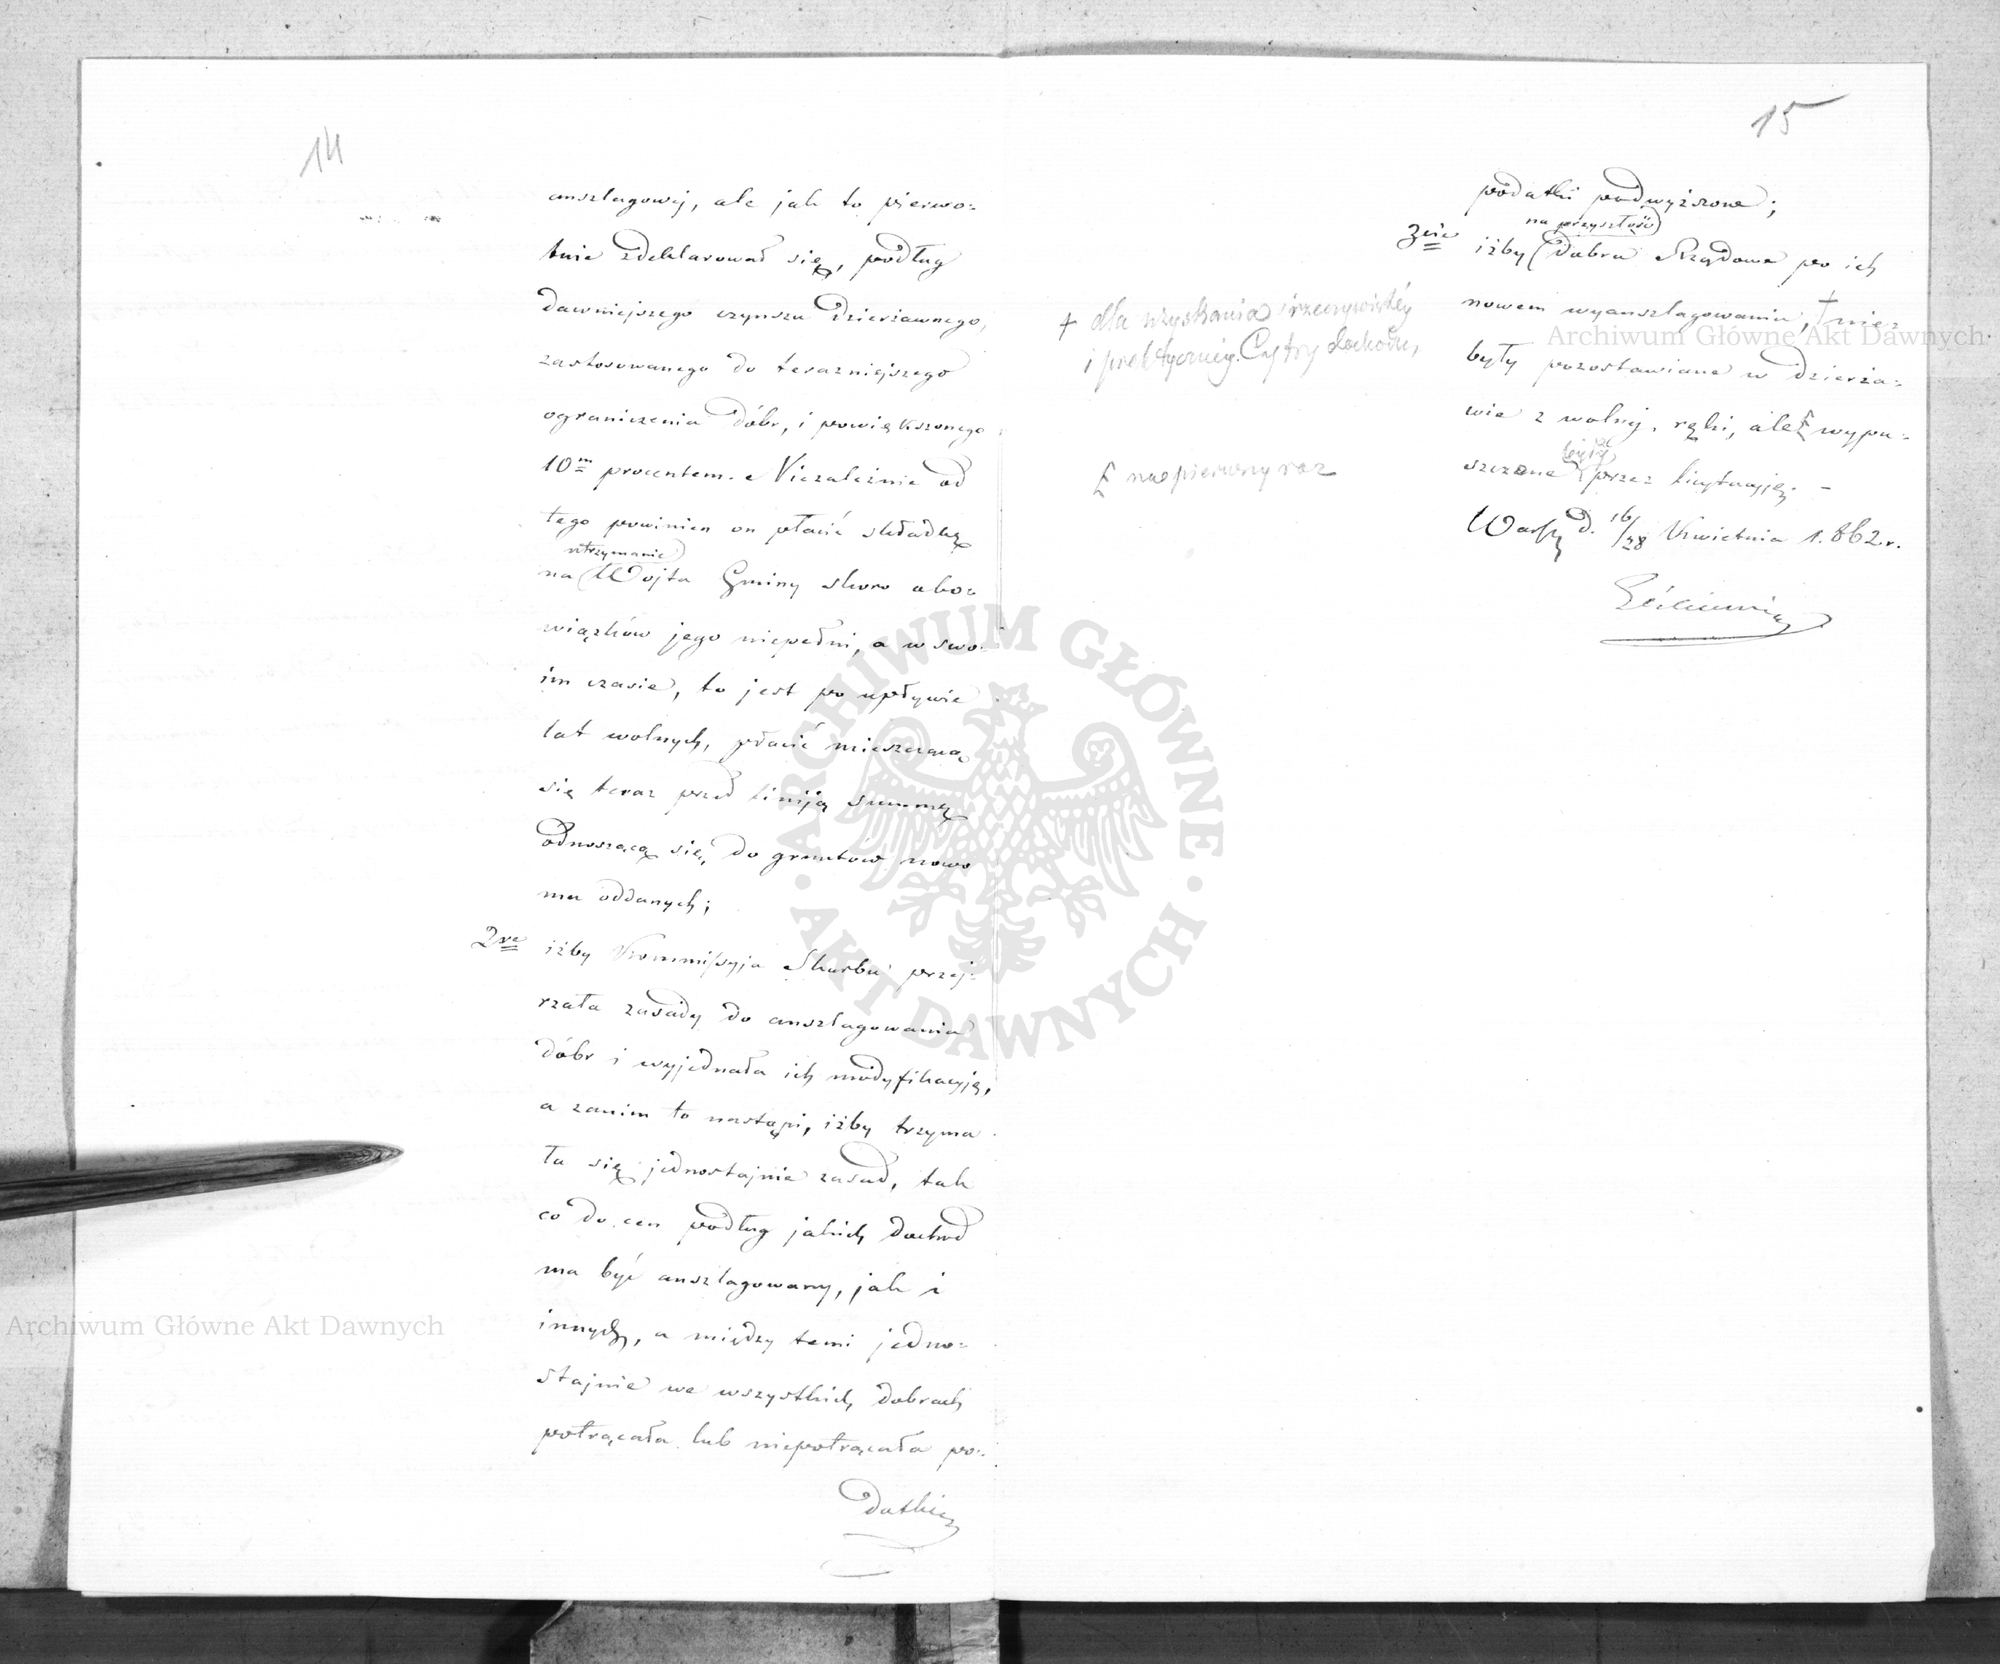 14
anszlagowej, ale jak to pierwo-
tnie zdeklarował się, podług
dawniejszego czynszu dzierżawnego,
zastosowanego do teraźniejszego
ograniczenia dóbr, i powiększonego
10m procentem. Niezależnie od
tego powinien on płacić składkę
utrzymanie
na Wójta Gminy skoro obo-
wiązków jego niepełni, a w swo-
im czasie, to jest po upływie
lat wolnych, płacić mieszczącą
się teraz przed liniją summę
odnoszącą się do gruntów nowo
mu oddanych;
2re iżby Kommissyja Skarbu przej-
rzała zasady do anszlagowania
dóbr i wyjednała ich modyfikacyję,
a zanim to nastąpi, iżby trzyma
ła się jednostajnie zasad, tak
co do cen podług jakich dochod
ma być anszlagowany, jak i
innych, a między temi jedno-
stajnie we wszystkich dobrach
potrącała lub niepotrącała po-
datki
15
podatki podwyższone;
na przyszłość
3cie iżby Dobra Rządowe po ich
nowem wyanszlagowaniu, † nie-
były pozostawiane w dzierża-
wie z wolnej ręki, ale wypu-
były
szczane przez licytacyję. –
Warsz. d. 16/28 Kwietnia 1862 r.
† dla uzyskania rzeczywistéj
i praktycznéj Cyfry dochodu,
na pierwszy raz
Archiwum Główne Akt Dawnych
Archiwum Główne Akt Dawnych
ARCHIWUM GŁÓWNE AKT DAWNYCH